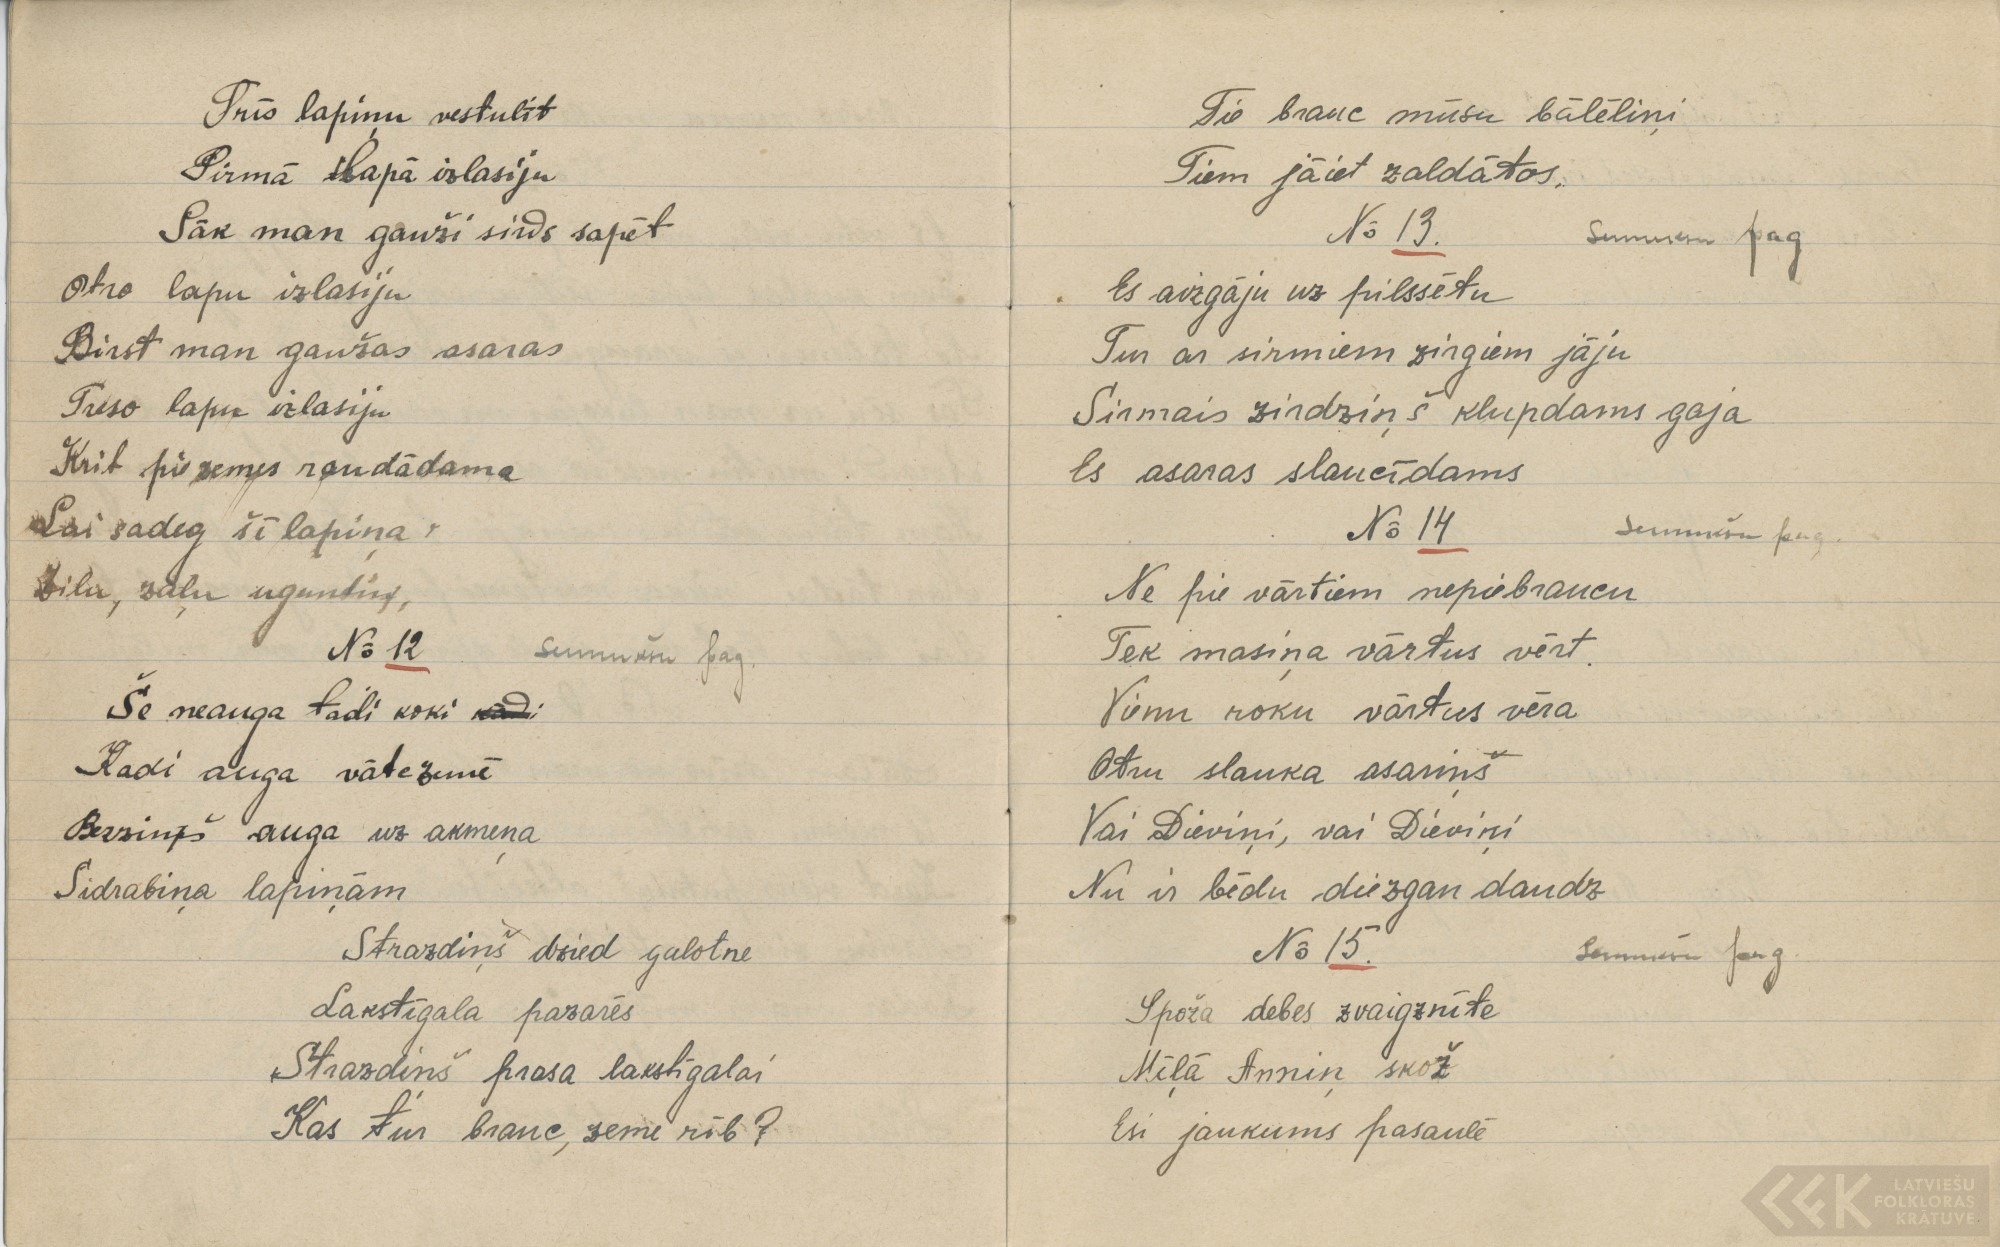 Trīs lapiņu vestulīt
Pirmā lapā izlasiju
Sāk man gauži sirds sapēt
Otro lapu izlasiju
Birst man gaužas asaras
Treso lapu izlasiju
Krit pie zemes raudādama
Lai sadeg šī lapiņa
Zilu, zaļu uguntiņ,
No 12 pag.
Še neauga tādi koki kādi
Kadi auga vātezemē
Berziņš auga uz akmeņa
Sidrabiņa lapiņām
Strazdiņš dzied galotne
Lakstīgala pazarēs
Strazdiņš prasa lakstīgalai
Kas tur brauc, zeme rīb?
Tie brauc mūsu bālēliņi
Tiem jāiet zaldātos.
No 13. pag
Es aizgāju uz pilssētu
Tur ar sirmiem zirgiem jāju
Sirmais zirdziņš klupdams gaja
Es asaras slaucīdams
No 14 pag.
Ne pie vārtiem nepiebraucu
Tek masiņa vārtus vērt.
Vienu roku vārtus vēra
Otru slauka asariņš
Vai Dieviņi, vai Dieviņi
Nu ir bēdu diezgan daudz
No 15. pag.
Spoža debes zvaigznīte
Mīļā Anniņ skož
Esi jaukums pasaulē
LATVIEŠU
FOLKLORAS
KRĀTUVE